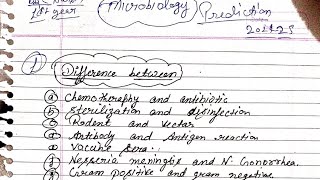 1st year
Microbiology Prediction
2024-25
① Difference between
ⓐ Chemotherephy and antibiotic
ⓑ Sterilization and disinfection
ⓒ Rodent and Vector
ⓓ Antibody and Antigen reaction
ⓔ Vaccine Sera..
ⓕ Nesseria meningitis and N- Gonorrhea.
ⓖ Gram positive and gram negative